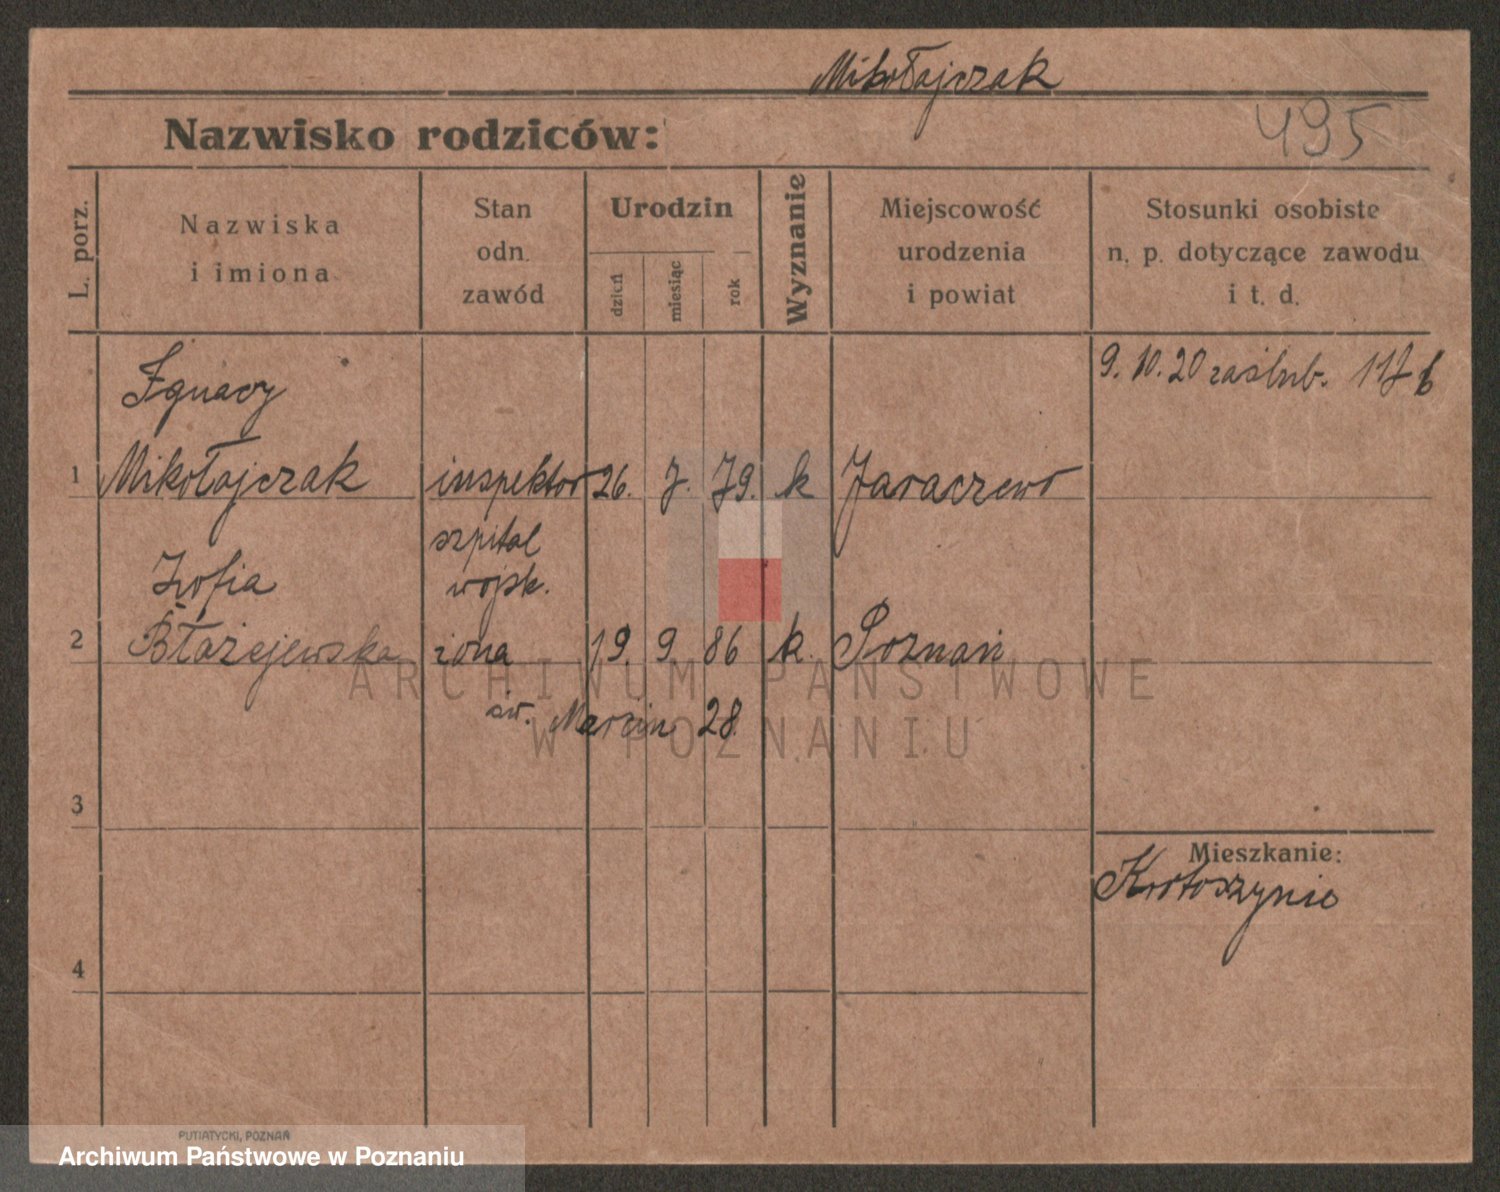 Mikołajczak
495
Nazwisko rodziców:
L. porz.
Nazwiska
i imiona
Stan
odn.
zawód
Urodzin
dzień
miesiąc
rok
Wyznanie
Miejscowość
urodzenia
i powiat
Stosunki osobiste
n. p. dotyczące zawodu
i t. d.
9. 10. 20 zaślub.
Ignacy
1 Mikołajczak inspektor 26. 7. 79. k Jaraczewo
szpital
wojsk.
Zofia
2 Błażejewska żona 19. 9 86 k. Poznań
św. Marcin 28.
3
Mieszkanie:
Krotoszynie
4
ARCHIWUM PAŃSTWOWE
W POZNANIU
PUTIATYCKI, POZNAŃ
Archiwum Państwowe w Poznaniu